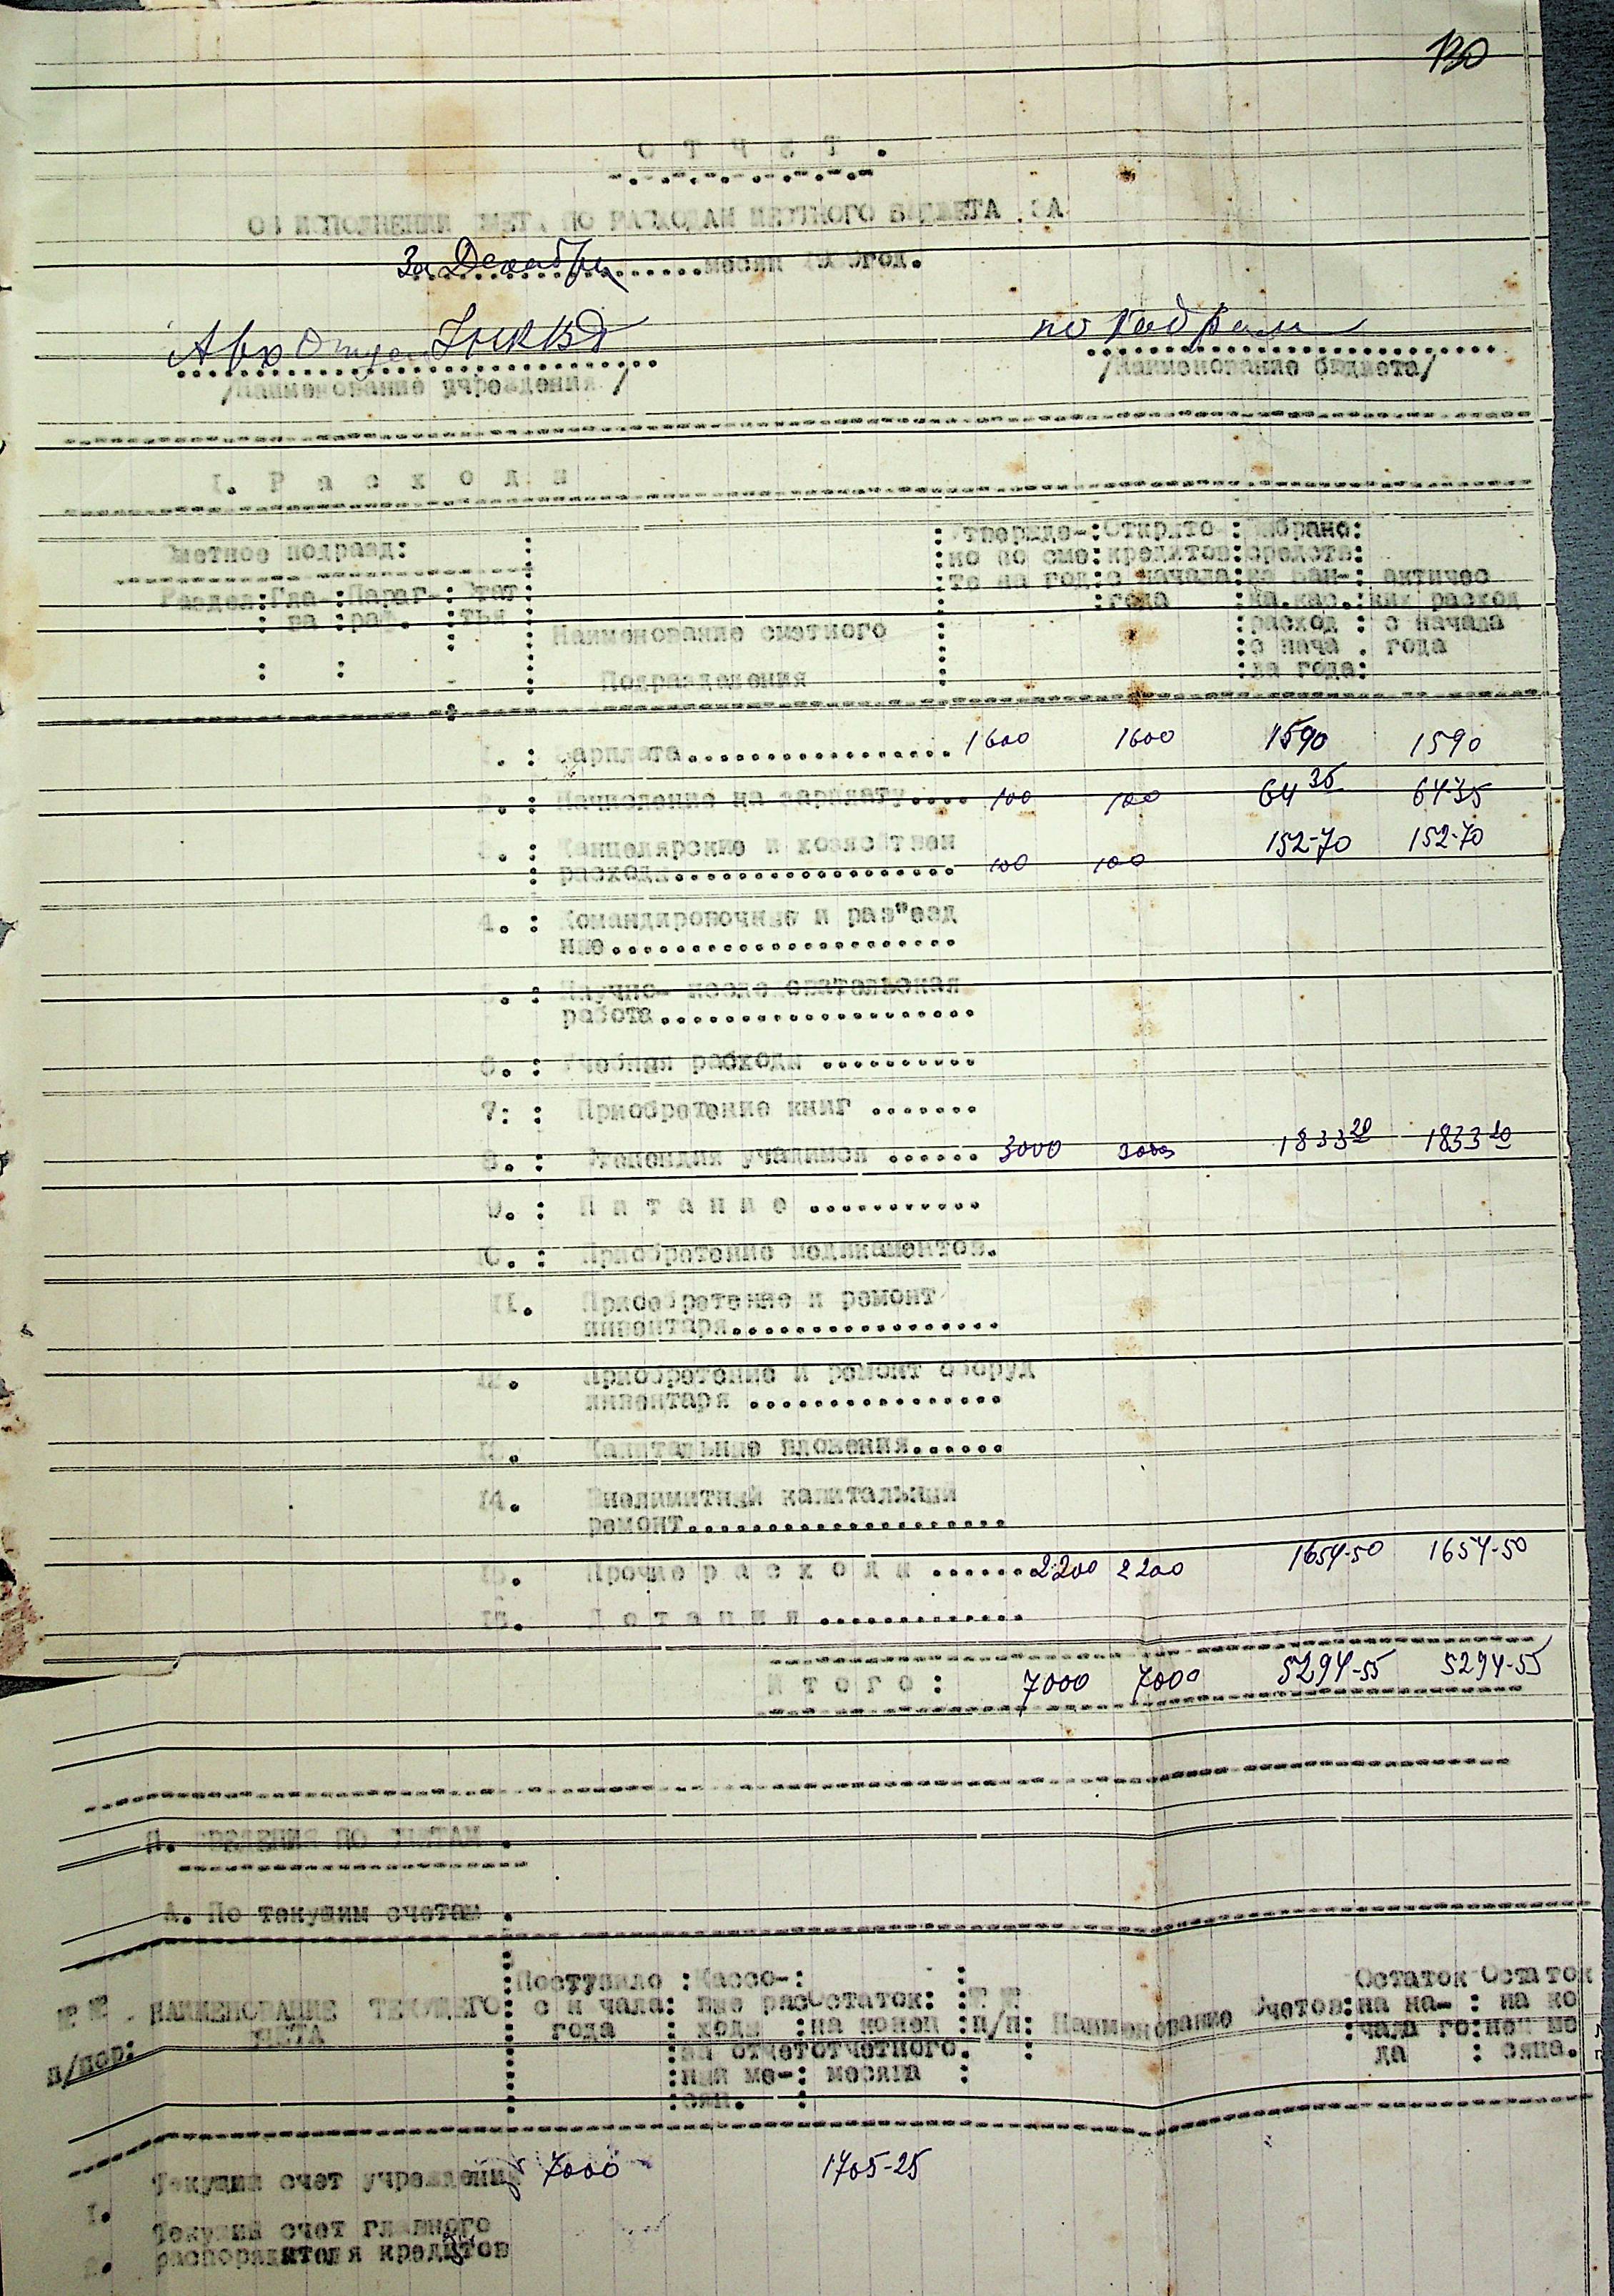 130
О Т Ч Е Т .
ОБ ИСПОЛНЕНИИ СМЕТ, ПО РАСХОДАМ МЕСТНОГО БЮДЖЕТА ЗА
За Декабрь месяц год.
Арх Отдел НКВД по Кадрам
/Наименование учреждения / /Наименование бюджета/
I. Р а с х о д ы
Сметное подразд: Утвержде-:Открыто :Выбрано:
но по сме:кредитов:средств:
те на год:с начала:из Бан-: актичес
Раздел:Гла-:Параг-: Стат года :ка.кас.:ких расход
: ва :раф. :тья :расход : с начала
Наименование сметного :с нача . года
Подразделения :ла года:
1. : Зарплата................. 1600 1600 1590 1590
2. : Начисление на зарплату.... 100 100 64 35 64 35
3. : Канцелярские и хозяйствен 152-70 152-70
расходы.................. 100 100
4. : Командировочные и раз"езд
ные......................
5. : Научно- исследовательская
работа....................
6. : Учебные расходы ..........
7: : Приобретение книг .......
8. : Стипендия учащимся ...... 3000 3000 1833 20 1833 20
9. : П и т а н и е ...........
10. : Приобретение медикаментов.
11. Приобретение и ремонт
инвентаря.................
12. Приобретение и ремонт оборуд
инвентаря ................
13. Капитальные вложения......
14. Внелимитный капитальный
ремонт....................
15. Прочие р а с х о д ы ...... 2200 2200 1654-50 1654-50
Д о т а ц и я .............
И т о г о : 7000 7000 5294-55 5294-55
П. СВЕДЕНИЯ ПО СЧЕТАМ .
А. По текущим счетам .
Поступило :Кассо-: Остаток Остаток
№ № . НАИМЕНОВАНИЕ ТЕКУЩЕГО: с н чала: вые рас Остаток: № № Наименование Счетов:на на- : на ко
СЧЕТА года : ходы :на конец :п/п: :чала го:нец ме
п/пор: :за отчет отчетного. да : сяца.
:ный ме-: месяца :
:сяц. :
Текущий счет учреждения 7000 1705-25
1.
Текущий счет главного
2. распорядителя кредитов